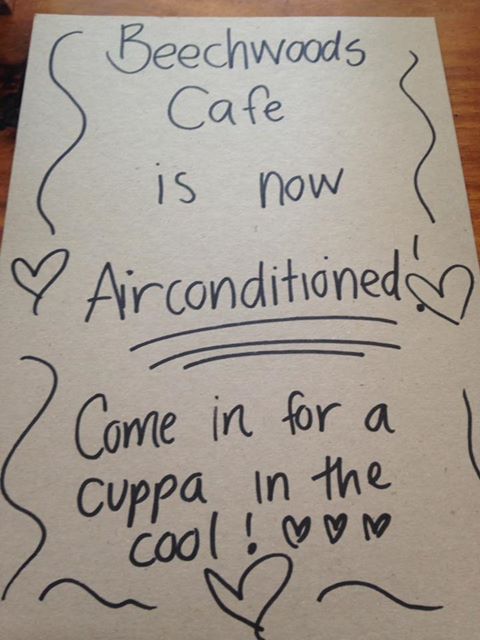 Beechwoods
Cafe
is now
Airconditioned!
Come in for a
cuppa in the
cool!